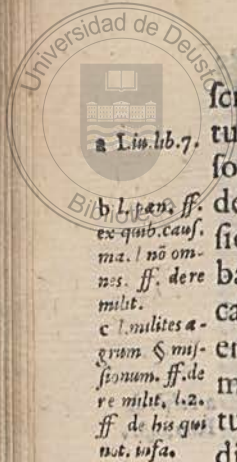 Universidad de Deusto
Biblioteca
a Liu. lib. 7.
b l. pæn. ff.
ex quib. cauſ.
ma. l nō om-
nes. ff. de re
milit.
c l. milites a-
grum § miſ-
ſionum. ff. de
re milit. l. 2.
ff de his qui
not. infa.
ſcr
tu
ſo
de
ſic
ba
ca
en
m
tu
di